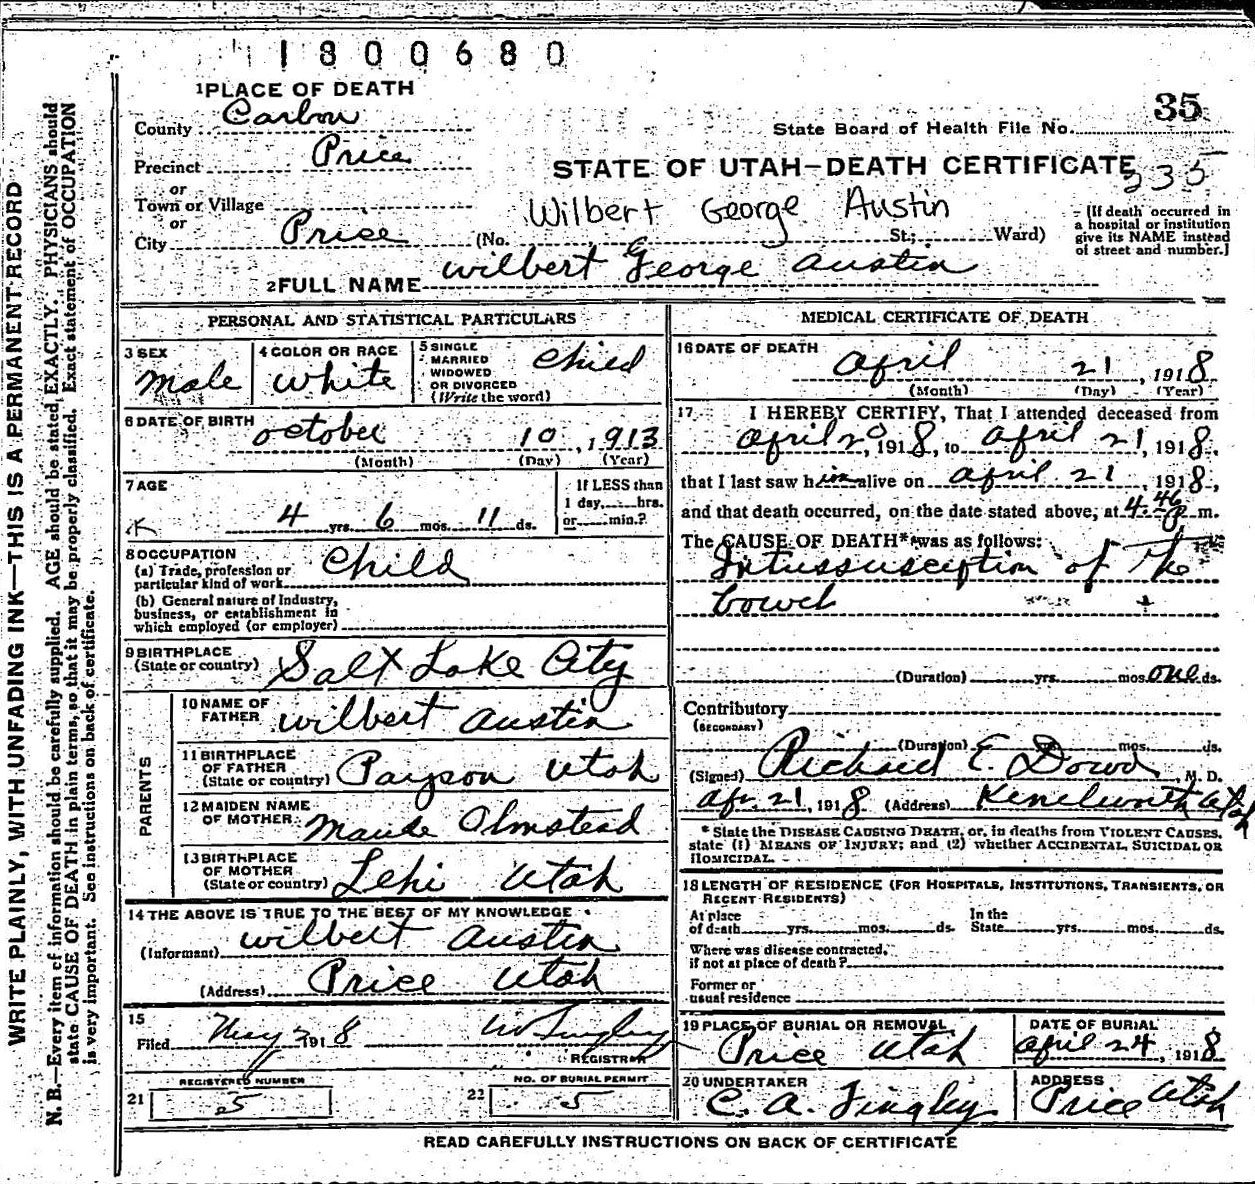 1800680
1 PLACE OF DEATH
County Carbon
35
State Board of Health File No.
Precinct Price
STATE OF UTAH—DEATH CERTIFICATE
235
or
Town or Village
or
Wilbert George Austin
City Price (No. St.; Ward)
[If death occurred in
a hospital or institution
give its NAME instead
of street and number.]
2 FULL NAME Wilbert George Austin
PERSONAL AND STATISTICAL PARTICULARS
3 SEX
Male
4 COLOR OR RACE
White
5 SINGLE
MARRIED
WIDOWED
OR DIVORCED
(Write the word)
Child
6 DATE OF BIRTH
October 10, 1913
(Month) (Day) (Year)
7 AGE
4 yrs. 6 mos. 11 ds.
If LESS than
1 day, hrs.
or min.?
8 OCCUPATION
(a) Trade, profession or
particular kind of work Child
(b) General nature of Industry,
business, or establishment in
which employed (or employer)
9 BIRTHPLACE
(State or country) Salt Lake City
PARENTS
10 NAME OF
FATHER Wilbert Austin
11 BIRTHPLACE
OF FATHER
(State or country) Payson Utah
12 MAIDEN NAME
OF MOTHER Maude Olmstead
13 BIRTHPLACE
OF MOTHER
(State or country) Lehi Utah
14 THE ABOVE IS TRUE TO THE BEST OF MY KNOWLEDGE
(Informant) Wilbert Austin
(Address) Price Utah
15
Filed May 2 1918
REGISTRAR
REGISTERED NUMBER
21 5
NO. OF BURIAL PERMIT
22 5
MEDICAL CERTIFICATE OF DEATH
16 DATE OF DEATH
April 21, 1918
(Month) (Day) (Year)
17 I HEREBY CERTIFY, That I attended deceased from
April 20, 1918, to April 21, 1918,
that I last saw him alive on April 21, 1918,
and that death occurred, on the date stated above, at 4:46 P m.
The CAUSE OF DEATH* was as follows:
Intussusception of the
bowel
(Duration) yrs. mos. one ds.
Contributory
(SECONDARY)
(Duration) yrs. mos. ds.
(Signed) Richard E. Dowd, M. D.
Apr. 21, 1918 (Address) Kenilworth Utah
* State the DISEASE CAUSING DEATH, or, in deaths from VIOLENT CAUSES,
state (1) MEANS OF INJURY; and (2) whether ACCIDENTAL, SUICIDAL OR
HOMICIDAL.
18 LENGTH OF RESIDENCE (FOR HOSPITALS, INSTITUTIONS, TRANSIENTS, OR
RECENT RESIDENTS)
At place
of death yrs. mos. ds.
In the
State yrs. mos. ds.
Where was disease contracted,
if not at place of death?
Former or
usual residence
19 PLACE OF BURIAL OR REMOVAL
Price Utah
DATE OF BURIAL
April 24, 1918
20 UNDERTAKER
C. A. Fingley
ADDRESS
Price Utah
READ CAREFULLY INSTRUCTIONS ON BACK OF CERTIFICATE
WRITE PLAINLY, WITH UNFADING INK—THIS IS A PERMANENT RECORD
N. B.—Every item of information should be carefully supplied. AGE should be stated EXACTLY. PHYSICIANS should
state CAUSE OF DEATH in plain terms, so that it may be properly classified. Exact statement of OCCUPATION
is very important. See instructions on back of certificate.